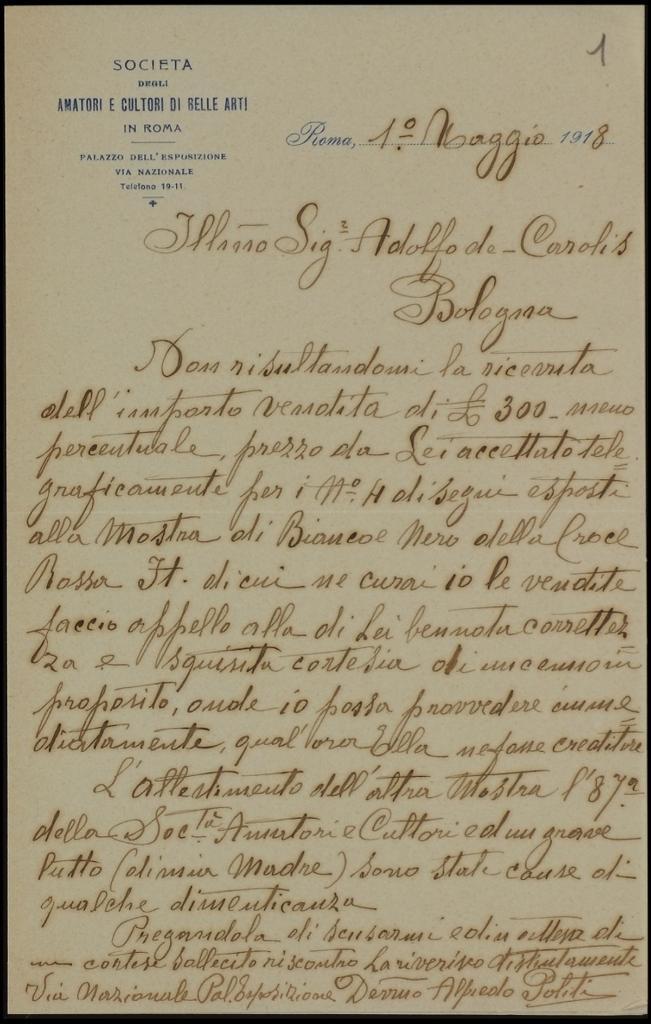 1
SOCIETA
DEGLI
AMATORI E CULTORI DI BELLE ARTI
IN ROMA
PALAZZO DELL'ESPOSIZIONE
VIA NAZIONALE
Telefono 19-11
Roma, 1.º Maggio 1918
Illmo Sigr. Adolfo de-Carolis
Bologna
Non risultandomi la ricevuta
dell'importo vendita di £ 300- meno
percentuale, prezzo da Lei accettato tele=
graficamente per i Nº. 4 disegni esposti
alla Mostra di Bianco e Nero della Croce
Rossa It. di cui ne curai io le vendite
faccio appello alla di Lei bennota correttez=
za e squisita cortesia di un cenno in
proposito, onde io possa provvedere imme=
diatamente, qual'ora Ella ne fosse creditore
L'allestimento dell'altra Mostra l'87ª
della Soctà Amatori e Cultori ed un grave
lutto (di mia Madre) sono stati cause di
qualche dimenticanza
Pregandola di scusarmi ed in attesa di
un cortese sollecito riscontro La riverisco distintamente
Via Nazionale Pal. Esposizione Devmo Alfredo Politi